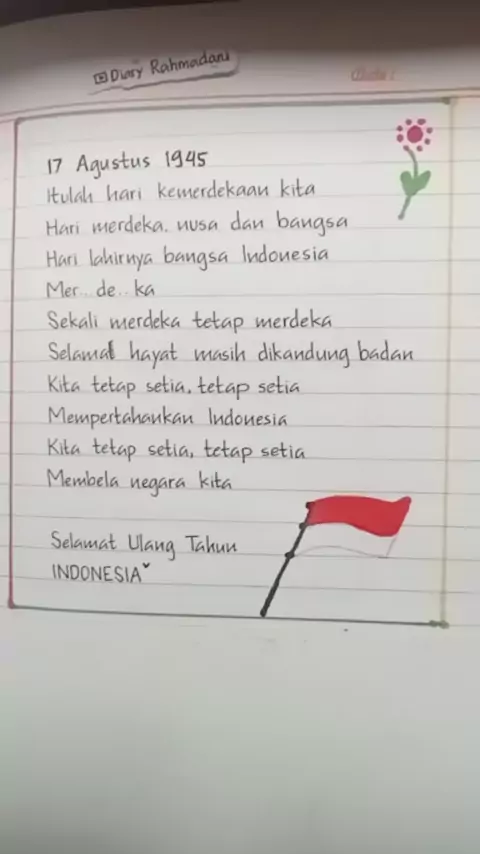 Diary Rahmadani
17 Agustus 1945
Itulah hari kemerdekaan kita
Hari merdeka. nusa dan bangsa
Hari lahirnya bangsa Indonesia
Mer.. de.. ka
Sekali merdeka tetap merdeka
Selamat hayat masih dikandung badan
Kita tetap setia, tetap setia
Mempertahankan Indonesia
Kita tetap setia, tetap setia
Membela negara kita
Selamat Ulang Tahun
INDONESIA